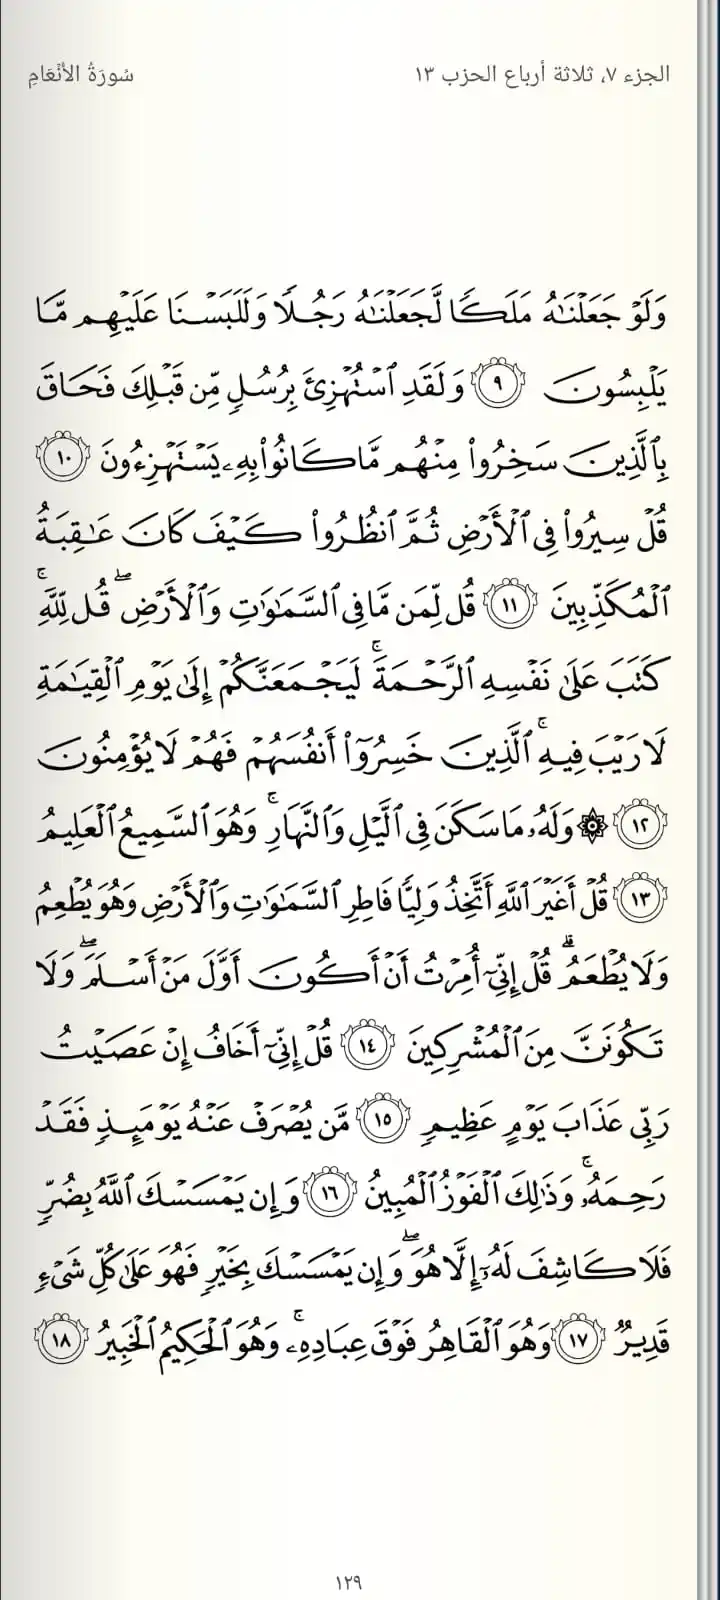 الجزء ٧، ثلاثة أرباع الحزب ١٣
سُورَةُ الأَنۡعَامِ
وَلَوۡ جَعَلۡنَٰهُ مَلَكٗا لَّجَعَلۡنَٰهُ رَجُلٗا وَلَلَبَسۡنَا عَلَيۡهِم مَّا
يَلۡبِسُونَ ٩ وَلَقَدِ ٱسۡتُهۡزِئَ بِرُسُلٖ مِّن قَبۡلِكَ فَحَاقَ
بِٱلَّذِينَ سَخِرُواْ مِنۡهُم مَّا كَانُواْ بِهِۦ يَسۡتَهۡزِءُونَ ١٠
قُلۡ سِيرُواْ فِي ٱلۡأَرۡضِ ثُمَّ ٱنظُرُواْ كَيۡفَ كَانَ عَٰقِبَةُ
ٱلۡمُكَذِّبِينَ ١١ قُل لِّمَن مَّا فِي ٱلسَّمَٰوَٰتِ وَٱلۡأَرۡضِۖ قُل لِّلَّهِۚ
كَتَبَ عَلَىٰ نَفۡسِهِ ٱلرَّحۡمَةَۚ لَيَجۡمَعَنَّكُمۡ إِلَىٰ يَوۡمِ ٱلۡقِيَٰمَةِ
لَا رَيۡبَ فِيهِۚ ٱلَّذِينَ خَسِرُوٓاْ أَنفُسَهُمۡ فَهُمۡ لَا يُؤۡمِنُونَ
١٢ ۞ وَلَهُۥ مَا سَكَنَ فِي ٱلَّيۡلِ وَٱلنَّهَارِۚ وَهُوَ ٱلسَّمِيعُ ٱلۡعَلِيمُ
١٣ قُلۡ أَغَيۡرَ ٱللَّهِ أَتَّخِذُ وَلِيّٗا فَاطِرِ ٱلسَّمَٰوَٰتِ وَٱلۡأَرۡضِ وَهُوَ يُطۡعِمُ
وَلَا يُطۡعَمُۗ قُلۡ إِنِّيٓ أُمِرۡتُ أَنۡ أَكُونَ أَوَّلَ مَنۡ أَسۡلَمَۖ وَلَا
تَكُونَنَّ مِنَ ٱلۡمُشۡرِكِينَ ١٤ قُلۡ إِنِّيٓ أَخَافُ إِنۡ عَصَيۡتُ
رَبِّي عَذَابَ يَوۡمٍ عَظِيمٖ ١٥ مَّن يُصۡرَفۡ عَنۡهُ يَوۡمَئِذٖ فَقَدۡ
رَحِمَهُۥۚ وَذَٰلِكَ ٱلۡفَوۡزُ ٱلۡمُبِينُ ١٦ وَإِن يَمۡسَسۡكَ ٱللَّهُ بِضُرّٖ
فَلَا كَاشِفَ لَهُۥٓ إِلَّا هُوَۖ وَإِن يَمۡسَسۡكَ بِخَيۡرٖ فَهُوَ عَلَىٰ كُلِّ شَيۡءٖ
قَدِيرٞ ١٧ وَهُوَ ٱلۡقَاهِرُ فَوۡقَ عِبَادِهِۦۚ وَهُوَ ٱلۡحَكِيمُ ٱلۡخَبِيرُ ١٨
١٢٩